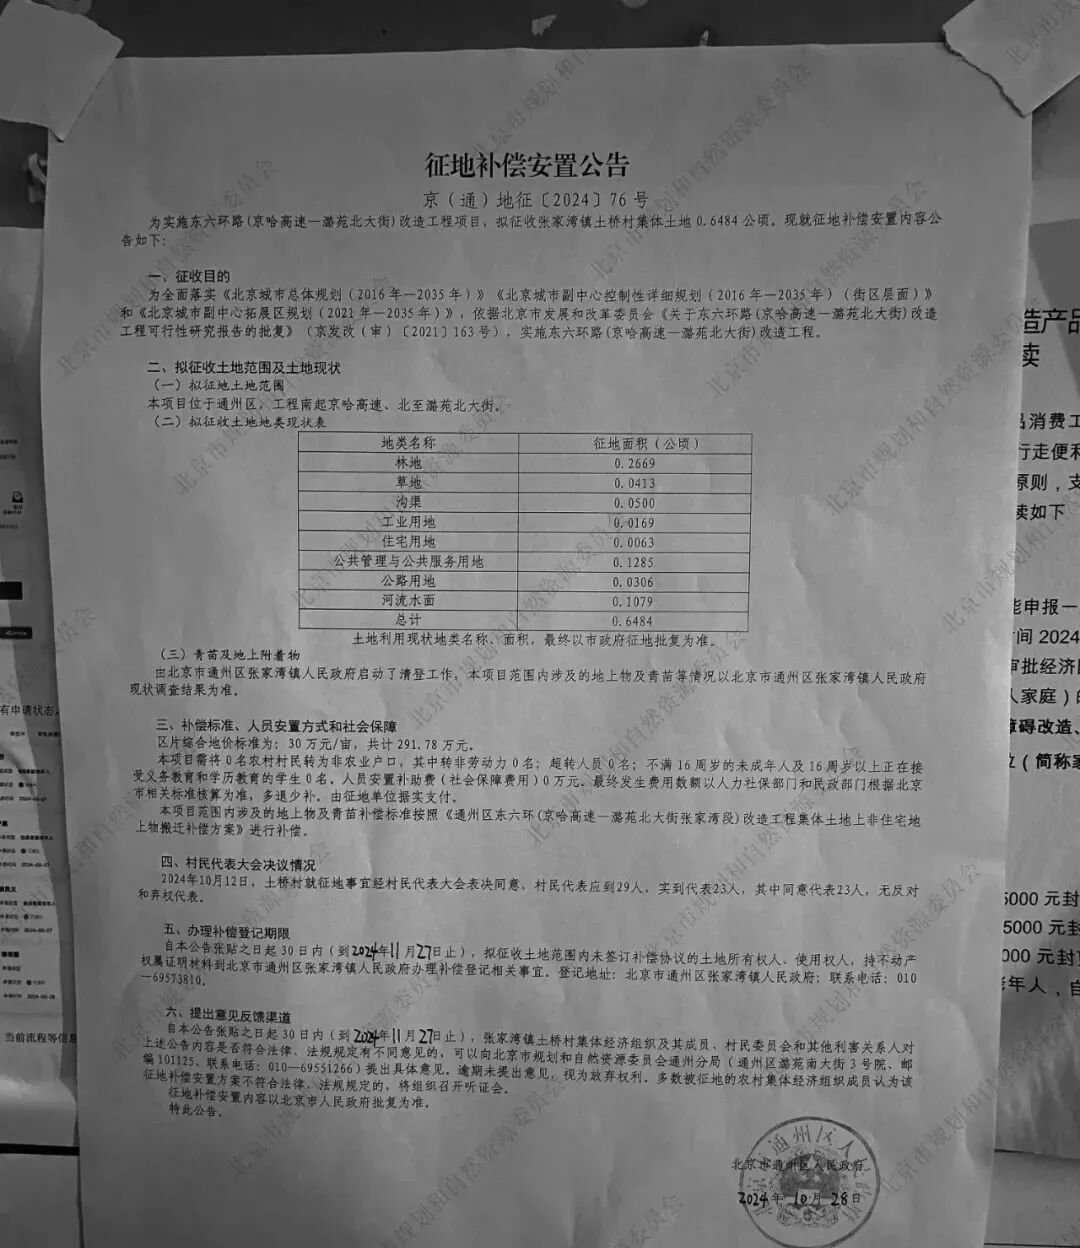 征地补偿安置公告
京（通）地征〔2024〕76号
为实施东六环路(京哈高速—潞苑北大街)改造工程项目，拟征收张家湾镇土桥村集体土地0.6484公顷。现就征地补偿安置内容公
告如下：
一、征收目的
为全面落实《北京城市总体规划（2016年—2035年）》《北京城市副中心控制性详细规划（2016年—2035年）（街区层面）》
和《北京城市副中心拓展区规划（2021年—2035年）》，依据北京市发展和改革委员会《关于东六环路(京哈高速—潞苑北大街)改造
工程可行性研究报告的批复》（京发改（审）〔2021〕163号），实施东六环路(京哈高速—潞苑北大街)改造工程。
二、拟征收土地范围及土地现状
（一）拟征地土地范围
本项目位于通州区，工程南起京哈高速、北至潞苑北大街。
（二）拟征收土地地类现状表
地类名称 征地面积（公顷）
林地 0.2669
草地 0.0413
沟渠 0.0500
工业用地 0.0169
住宅用地 0.0063
公共管理与公共服务用地 0.1285
公路用地 0.0306
河流水面 0.1079
总计 0.6484
土地利用现状地类名称、面积，最终以市政府征地批复为准。
（三）青苗及地上附着物
由北京市通州区张家湾镇人民政府启动了清登工作，本项目范围内涉及的地上物及青苗等情况以北京市通州区张家湾镇人民政府
现状调查结果为准。
三、补偿标准、人员安置方式和社会保障
区片综合地价标准为：30万元/亩，共计291.78万元。
本项目需将0名农村村民转为非农业户口，其中转非劳动力0名；超转人员0名；不满16周岁的未成年人及16周岁以上正在接
受义务教育和学历教育的学生0名。人员安置补助费（社会保障费用）0万元。最终发生费用数额以人力社保部门和民政部门根据北京
市相关标准核算为准，多退少补。由征地单位据实支付。
本项目范围内涉及的地上物及青苗补偿标准按照《通州区东六环(京哈高速—潞苑北大街张家湾段)改造工程集体土地上非住宅地
上物搬迁补偿方案》进行补偿。
四、村民代表大会决议情况
2024年10月12日，土桥村就征地事宜经村民代表大会表决同意，村民代表应到29人，实到代表23人，其中同意代表23人，无反对
和弃权代表。
五、办理补偿登记期限
自本公告张贴之日起30日内（到2024年11月27日止），拟征收土地范围内未签订补偿协议的土地所有权人、使用权人，持不动产
权属证明材料到北京市通州区张家湾镇人民政府办理补偿登记相关事宜。登记地址：北京市通州区张家湾镇人民政府；联系电话：010
—69573810。
六、提出意见反馈渠道
自本公告张贴之日起30日内（到2024年11月27日止），张家湾镇土桥村集体经济组织及其成员、村民委员会和其他利害关系人对
上述公告内容是否符合法律、法规规定有不同意见的，可以向北京市规划和自然资源委员会通州分局（通州区潞苑南大街3号院、邮
编101125、联系电话：010—69551266）提出具体意见。逾期未提出意见，视为放弃权利。多数被征地的农村集体经济组织成员认为该
征地补偿安置方案不符合法律、法规规定的，将组织召开听证会。
征地补偿安置内容以北京市人民政府批复为准。
特此公告。
北京市通州区人民政府
2024年10月28日
造产品
续
品消费工
行走便利
原则，支
续如下
能申报一
间2024
审批经济
人家庭）的
障碍改造、
位（简称家
5000元封
5000元封
000元封
老年人，自
有申请状态
当前流程等信息
北京市规划和自然资源委员会